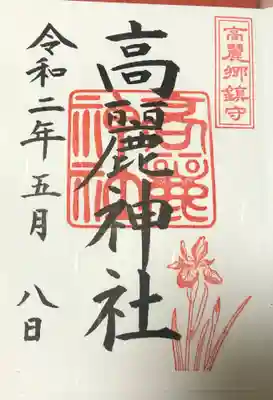 高麗郷鎮守
高麗神社
高麗神社
令和二年五月
八日